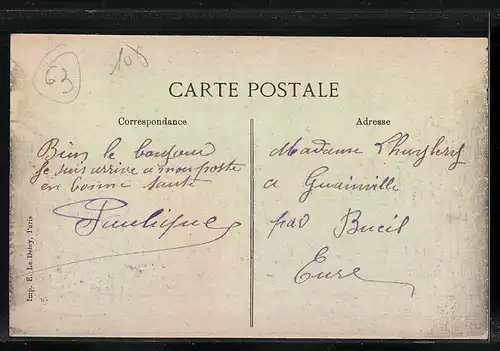 63
108
CARTE POSTALE
Correspondance
Adresse
Bien le bonjour
Je suis arrivé a mon poste
en bonne santé
Madame
a Guainville
par Bueil
Eure
Imp. E. Le Deley, Paris